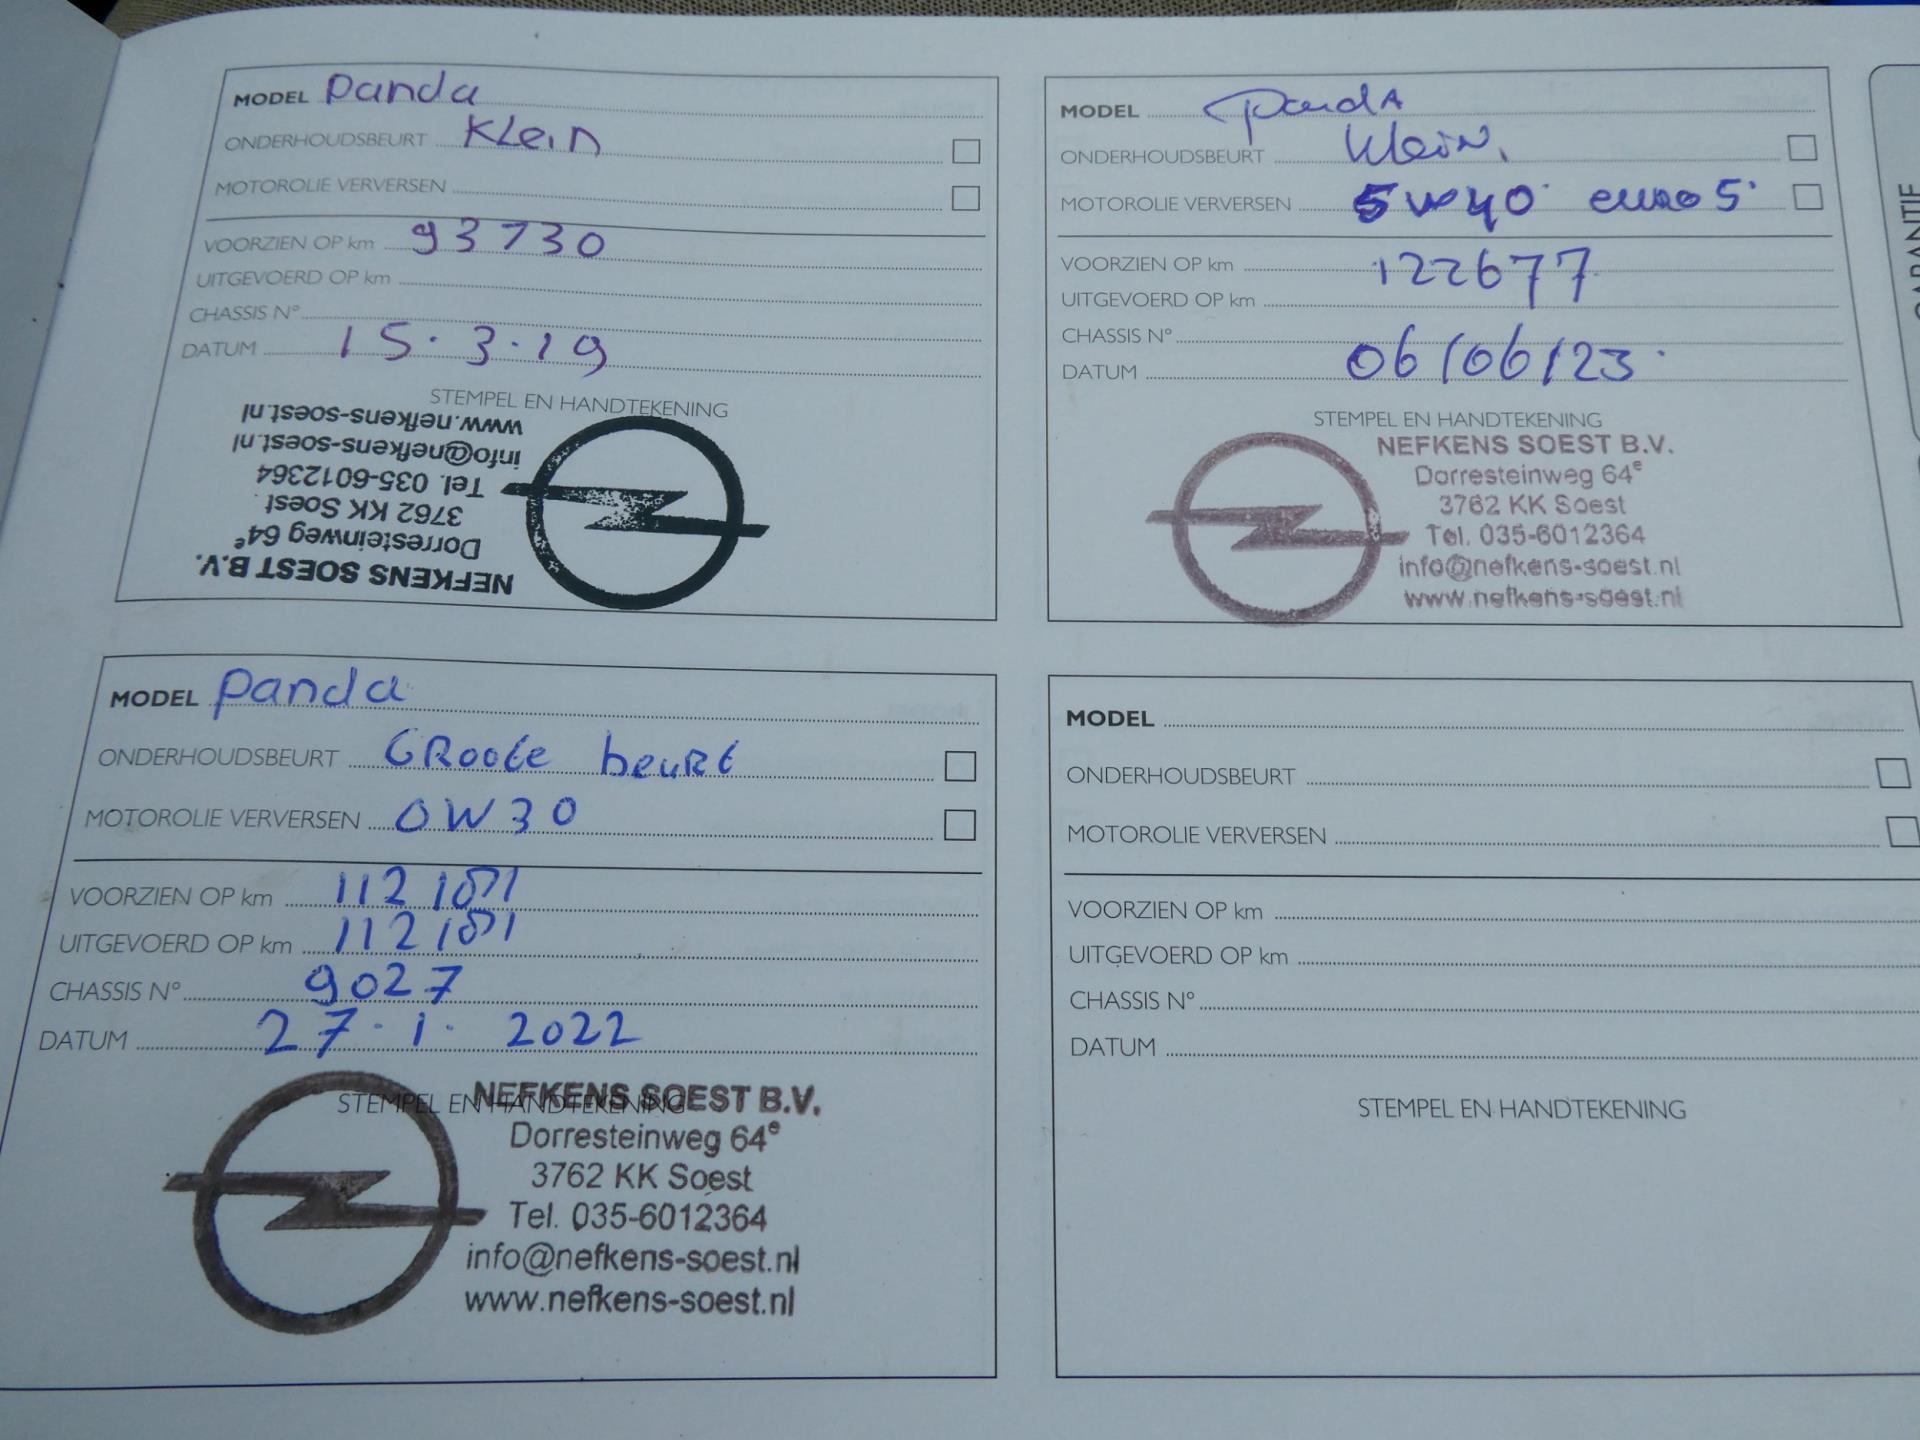 MODEL Panda
ONDERHOUDSBEURT Klein
MOTOROLIE VERVERSEN
VOORZIEN OP km 93730
UITGEVOERD OP km
CHASSIS N°
DATUM 15.3.19
STEMPEL EN HANDTEKENING
NEFKENS SOEST B.V.
Dorresteinweg 64e
3762 KK Soest
Tel. 035-6012364
info@nefkens-soest.nl
www.nefkens-soest.nl
MODEL Panda
ONDERHOUDSBEURT Klein.
MOTOROLIE VERVERSEN 5W40 euro5
VOORZIEN OP km 122677
UITGEVOERD OP km
CHASSIS N°
DATUM 06/06/23
STEMPEL EN HANDTEKENING
NEFKENS SOEST B.V.
Dorresteinweg 64e
3762 KK Soest
Tel. 035-6012364
info@nefkens-soest.nl
www.nefkens-soest.nl
MODEL Panda
ONDERHOUDSBEURT GRoote beurt
MOTOROLIE VERVERSEN OW30
VOORZIEN OP km
UITGEVOERD OP km
CHASSIS N° 9027
DATUM 27.1.2022
STEMPEL EN HANDTEKENING
NEFKENS SOEST B.V.
Dorresteinweg 64e
3762 KK Soest
Tel. 035-6012364
info@nefkens-soest.nl
www.nefkens-soest.nl
MODEL
ONDERHOUDSBEURT
MOTOROLIE VERVERSEN
VOORZIEN OP km
UITGEVOERD OP km
CHASSIS N°
DATUM
STEMPEL EN HANDTEKENING